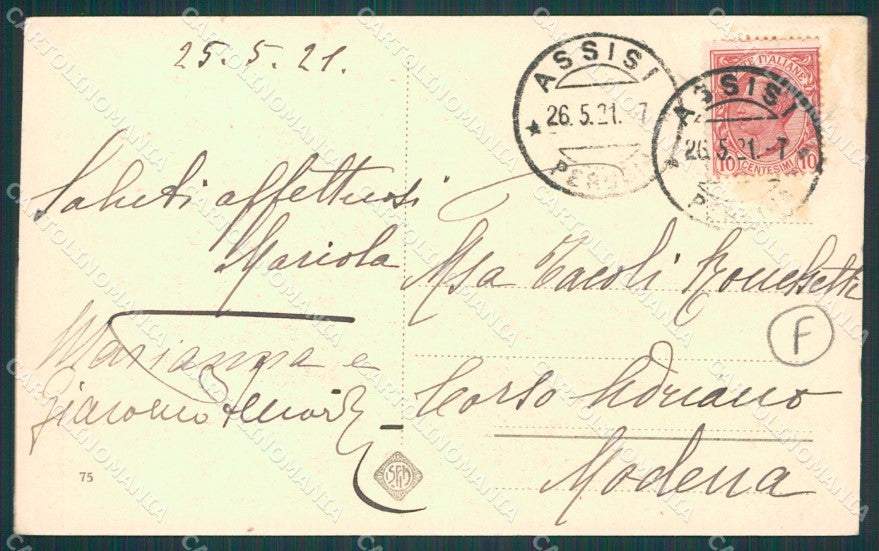 25.5.21.
ASSISI
26.5.21.-7
PERUGIA
ASSISI
26.5.21.-7
POSTE ITALIANE
10 CENTESIMI 10
Saluti affettuosi
Mariola
Marianna e
Giacomo
Msa Tacoli Ronchetti
Corso Adriano
Modena
F
75
CARTOLINOMANIA